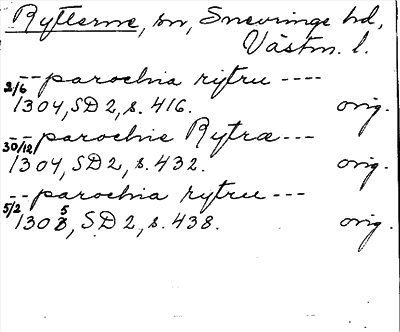 Rytterne, sn, Snevringe hd,
Västm. l.
-- parochia rytru ----
2/6 1304, SD 2, s. 416. orig.
-- parochie Rytræ ---
30/12 1304, SD 2, s. 432. orig.
-- parochia rytru ---
5/2 1305, SD 2, s. 438. orig.